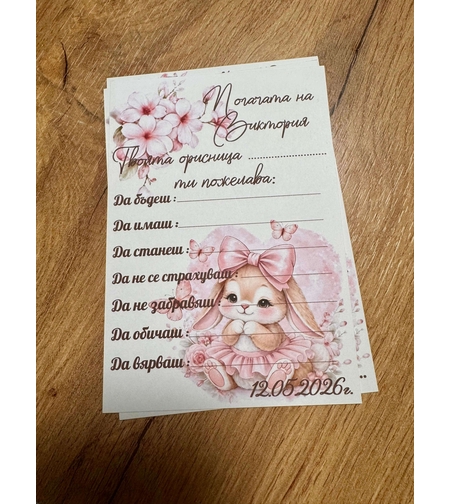 Погачата на
Виктория
Твоята орисница ......................
ти пожелава:
Да бъдеш:
Да имаш:
Да станеш:
Да не се страхуваш:
Да не забравяш:
Да обичаш:
Да вярваш:
12.05.2026г.